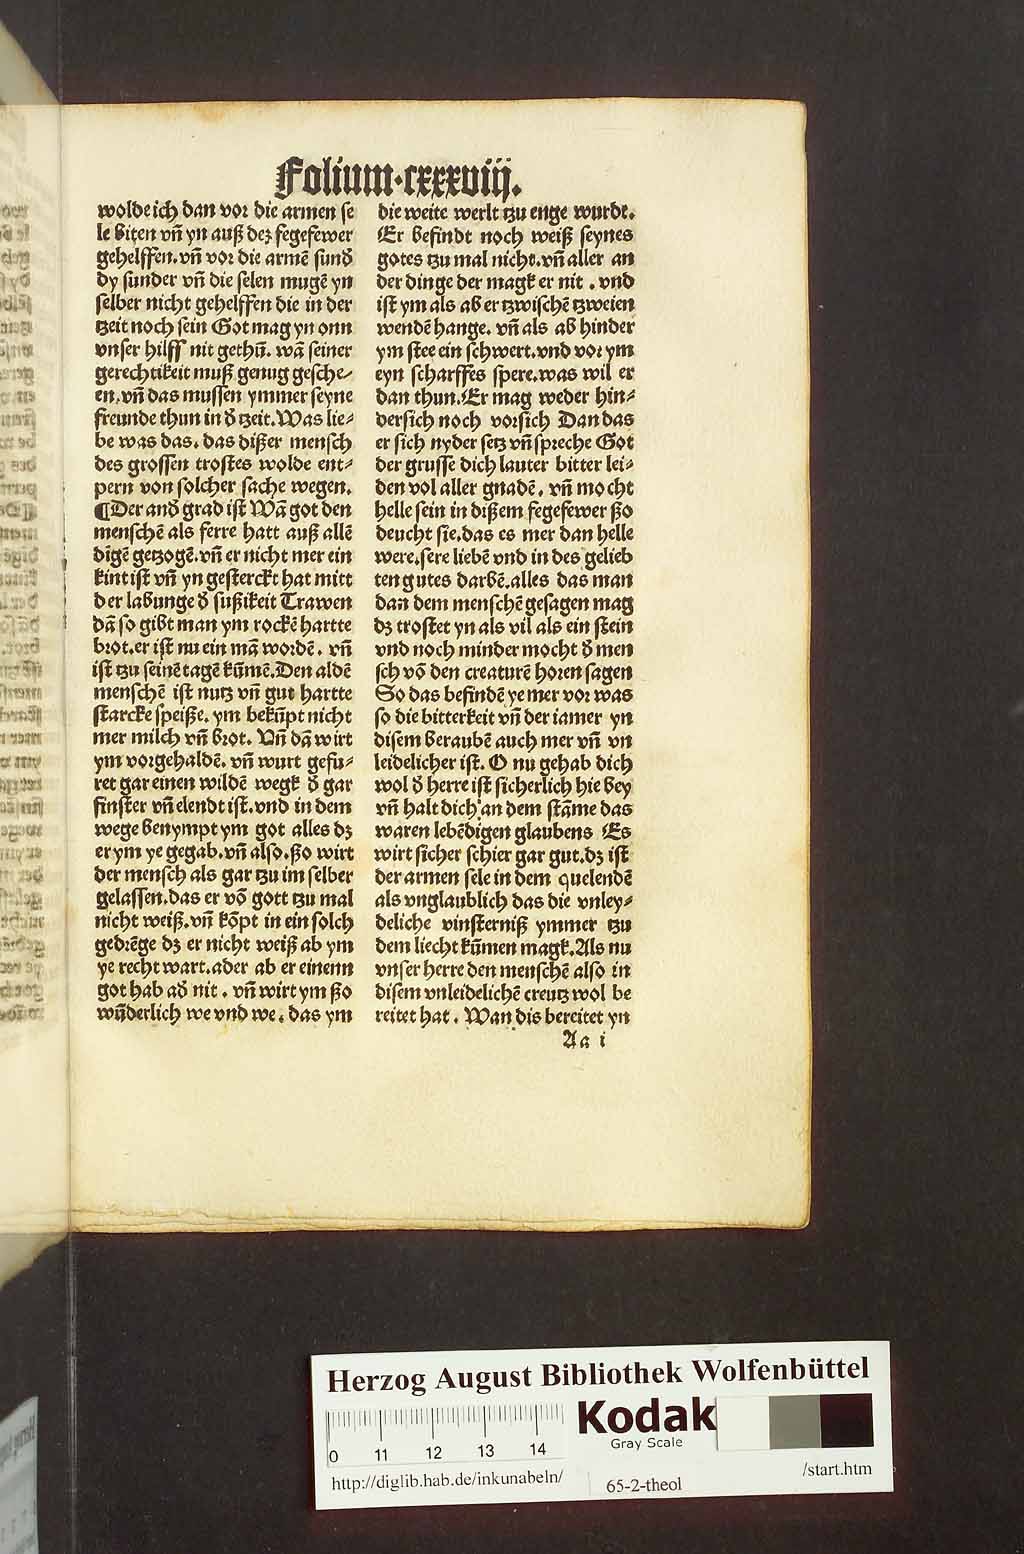 Folium·cxxxviij.
wolde ich dan vor die armen se
le biten vñ yn auß dez fegefewer
gehelffen. vñ vor die armē sund̄
dy sunder vñ die selen mugē yn
selber nicht gehelffen die in der
tzeit noch sein Got mag yn onn
vnser hilff nit gethū. wā seiner
gerechtikeit muß genug gesche⸗
en. vñ das mussen ymmer seyne
freunde thun in d̄ tzeit. Was lie⸗
be was das. das dißer mensch
des grossen trostes wolde ent⸗
pern von solcher sache wegen.
¶Der and̄ grad ist Wā got den
menschē als ferre hatt auß allē
dīgē getzogē. vñ er nicht mer ein
kint ist vñ yn gesterckt hat mitt
der labunge d̄ sußikeit Trawen
dā so gibt man ym rockē hartte
brot. er ist nu ein mā wordē. vñ
ist tzu seinē tagē kūmē. Den aldē
menschē ist nutz vñ gut hartte
starcke speiße. ym bekūpt nicht
mer milch vñ brot. Vñ dā wirt
ym vorgehaldē. vñ wurt gefu⸗
ret gar einen wildē wegk d̄ gar
finster vñ elendt ist. vnd in dem
wege benympt ym got alles dz
er ym ye gegab. vñ also. ßo wirt
der mensch als gar tzu im selber
gelassen. das er vō gott tzu mal
nicht weiß. vñ kōpt in ein solch
gedrēge dz er nicht weiß ab ym
ye recht wart. ader ab er einenn
got hab ad̄ nit. vñ wirt ym ßo
wūderlich we vnd we. das ym
die weite werlt tzu enge wurdt.
Er befindt noch weiß seynes
gotes tzu mal nicht. vñ aller an
der dinge der magk er nit. vnd
ist ym als ab er tzwischē tzweien
wendē hange. vñ als ab hinder
ym stee ein schwert. vnd vor ym
eyn scharffes spere. was wil er
dan thun. Er mag weder hin⸗
dersich noch vorsich Dan das
er sich nyder setz vñ spreche Got
der grusse dich lauter bitter lei⸗
den vol aller gnadē. vñ mocht
helle sein in dißem fegefewer ßo
deucht sie. das es mer dan helle
were. sere liebē vnd in des gelieb
ten gutes darbē. alles das man
dan dem menschē gesagen mag
dz trostet yn als vil als ein stein
vnd noch minder mocht d̄ men
sch vō den creaturē horen sagen
So das befindē ye mer vor was
so die bitterkeit vñ der iamer yn
disem beraubē auch mer vñ vn
leidelicher ist. O nu gehab dich
wol d̄ herre ist sicherlich hie bey
vñ halt dich an dem stāme das
waren lebēdigen glaubens Es
wirt sicher schier gar gut. dz ist
der armen sele in dem quelendē
als vnglaublich das die vnley⸗
deliche vinsterniß ymmer tzu
dem liecht kūmen magk. Als nu
vnser herre den menschē also in
disem vnleidelichē creutz wol be
reitet hat. Wan dis bereitet yn
Aa i
Herzog August Bibliothek Wolfenbüttel
Kodak
Gray Scale
0 11 12 13 14
http://diglib.hab.de/inkunabeln/
65-2-theol
/start.htm